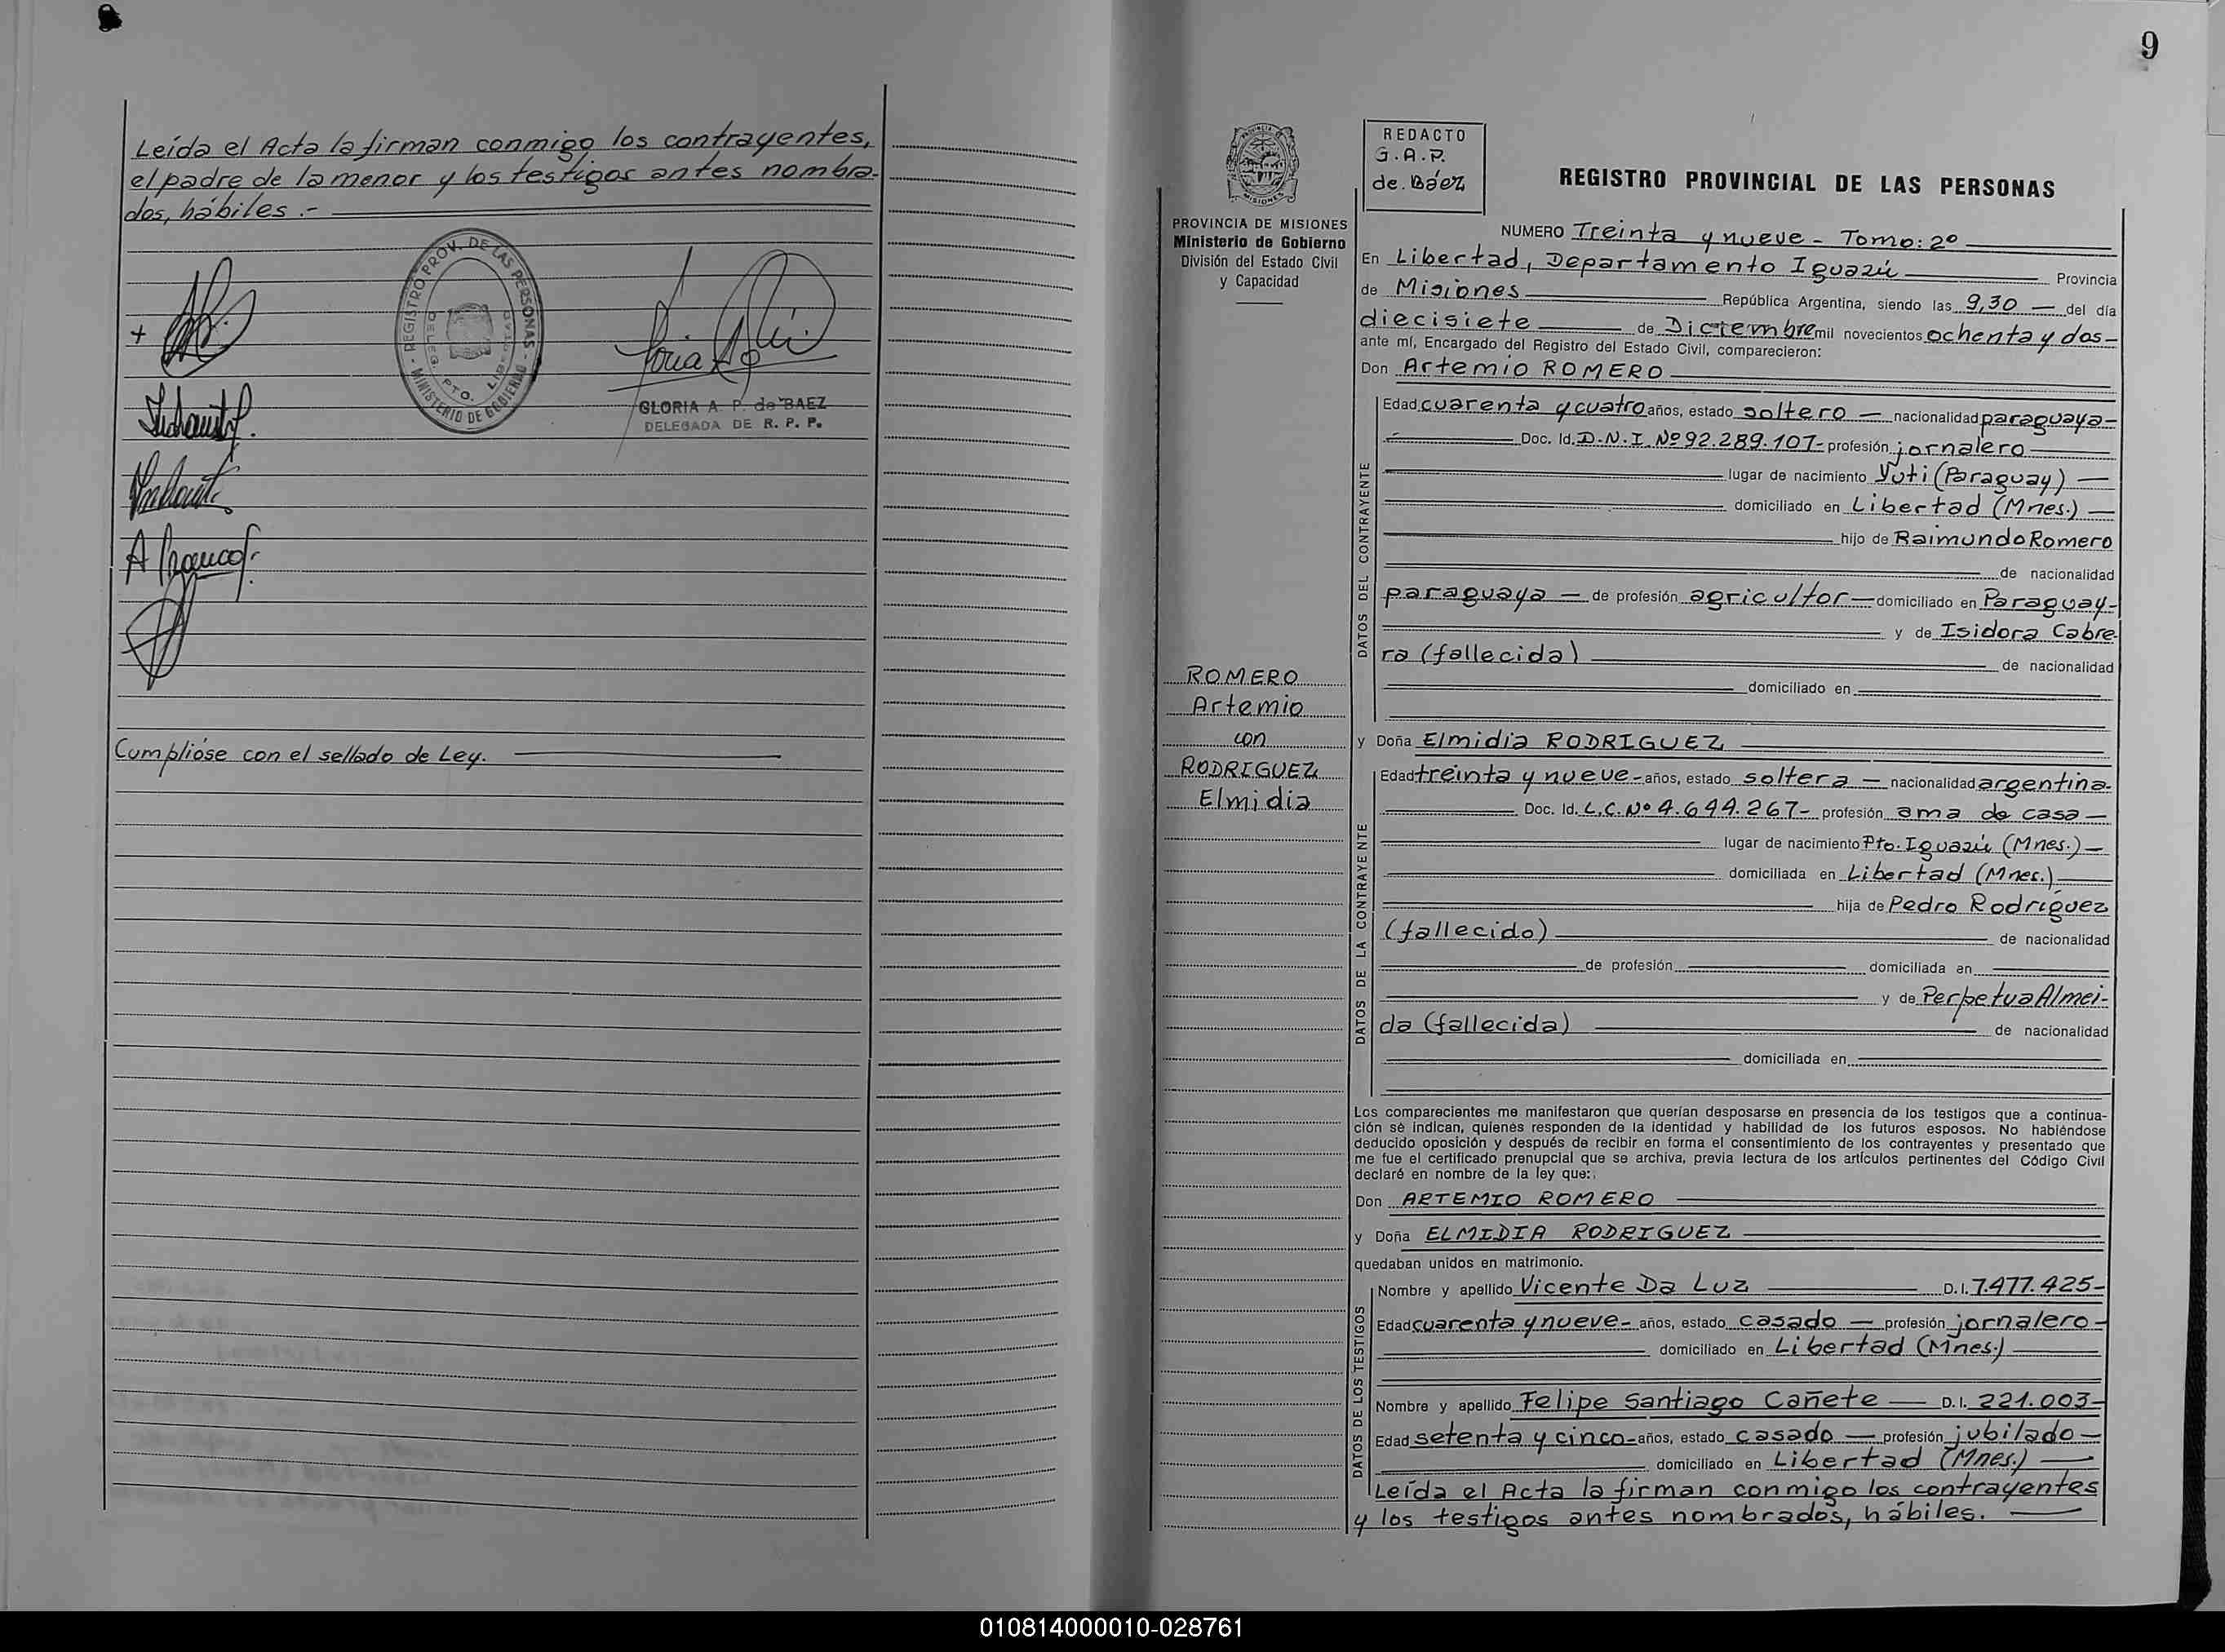 Leída el Acta la firman conmigo los contrayentes,
el padre de la menor y los testigos antes nombra-
dos, hábiles.-
REGISTRO PROV. DE LAS PERSONAS - MINISTERIO DE GOBIERNO
GLORIA A. P. de BAEZ
DELEGADA DE R. P. P.
Cumplióse con el sellado de Ley.
9
PROVINCIA DE MISIONES
Ministerio de Gobierno
División del Estado Civil
y Capacidad
ROMERO
Artemio
con
RODRIGUEZ
Elmidia
REDACTO
G.A.P.
de. Báez
REGISTRO PROVINCIAL DE LAS PERSONAS
NUMERO Treinta y nueve - Tomo: 2º
En Libertad, Departamento Iguazú Provincia
de Misiones República Argentina, siendo las 9,30 del día
diecisiete de Diciembre mil novecientos ochenta y dos-
ante mí, Encargado del Registro del Estado Civil, comparecieron:
Don Artemio ROMERO
DATOS DEL CONTRAYENTE
Edad cuarenta y cuatro años, estado soltero - nacionalidad paraguaya-
Doc. Id. D.N.I. Nº 92.289.107- profesión jornalero
lugar de nacimiento Yuti (Paraguay)
domiciliado en Libertad (Mnes.)
hijo de Raimundo Romero
de nacionalidad
paraguaya - de profesión agricultor - domiciliado en Paraguay-
y de Isidora Cabre-
ra (fallecida) de nacionalidad
domiciliado en
y Doña Elmidia RODRIGUEZ
DATOS DE LA CONTRAYENTE
Edad treinta y nueve- años, estado soltera - nacionalidad argentina-
Doc. Id. L.C. Nº 4.644.267- profesión ama de casa
lugar de nacimiento Pto. Iguazú (Mnes.)
domiciliada en Libertad (Mnes.)
hija de Pedro Rodríguez
(fallecido) de nacionalidad
de profesión domiciliada en
y de Perpetua Almei-
da (fallecida) de nacionalidad
domiciliada en
Los comparecientes me manifestaron que querían desposarse en presencia de los testigos que a continua-
ción se indican, quienes responden de la identidad y habilidad de los futuros esposos. No habiéndose
deducido oposición y después de recibir en forma el consentimiento de los contrayentes y presentado que
me fue el certificado prenupcial que se archiva, previa lectura de los artículos pertinentes del Código Civil
declaré en nombre de la ley que:
Don ARTEMIO ROMERO
y Doña ELMIDIA RODRIGUEZ
quedaban unidos en matrimonio.
DATOS DE LOS TESTIGOS
Nombre y apellido Vicente Da Luz D.I. 7.477.425-
Edad cuarenta y nueve- años, estado casado - profesión jornalero-
domiciliado en Libertad (Mnes.)
Nombre y apellido Felipe Santiago Cañete D.I. 221.003-
Edad setenta y cinco- años, estado casado - profesión jubilado-
domiciliado en Libertad (Mnes.)
Leída el Acta la firman conmigo los contrayentes
y los testigos antes nombrados, hábiles.
010814000010-028761